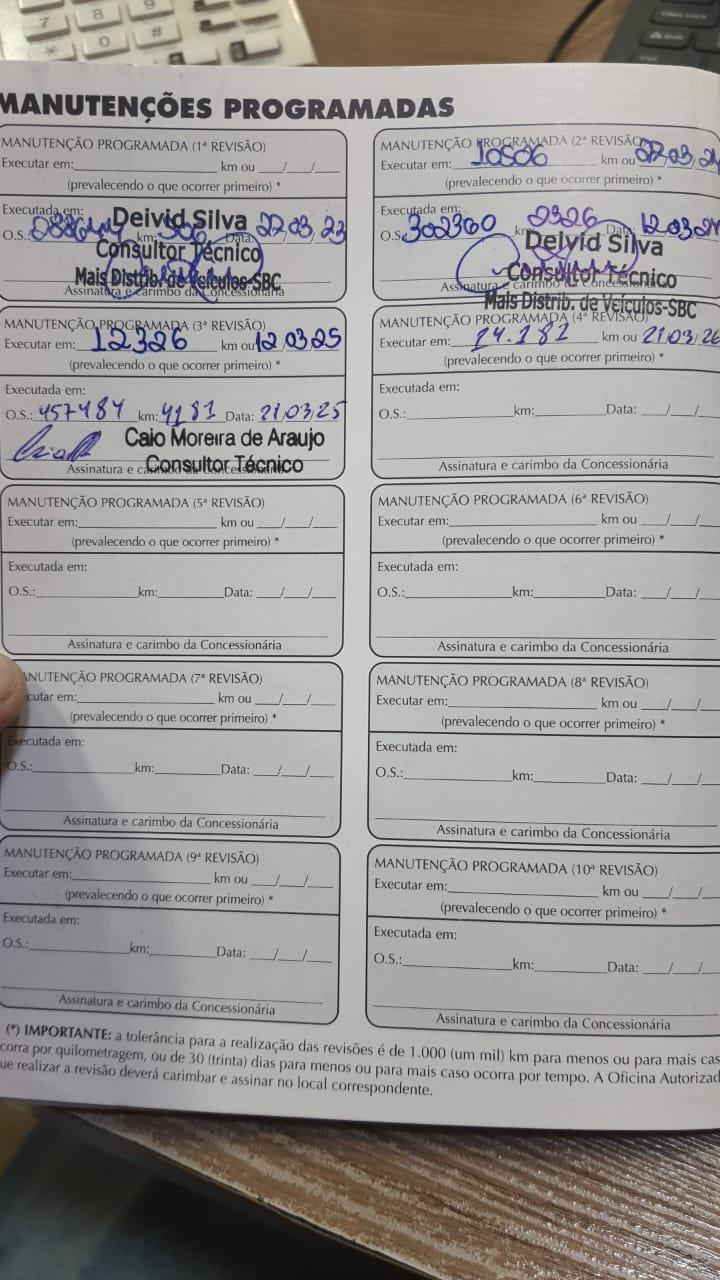 MANUTENÇÕES PROGRAMADAS
MANUTENÇÃO PROGRAMADA (1ª REVISÃO)
Executar em:____ km ou __/__/__
(prevalecendo o que ocorrer primeiro) *
Executada em:
O.S.: km: 506 Data: 22/03/23
Deivid Silva
Consultor Técnico
Mais Distrib. de Veículos-SBC
Assinatura e carimbo da Concessionária
MANUTENÇÃO PROGRAMADA (2ª REVISÃO)
Executar em: 10506 km ou 22/03/24
(prevalecendo o que ocorrer primeiro) *
Executada em:
O.S.: 302360 km: 2326 Data: 12/03/24
Deivid Silva
Consultor Técnico
Mais Distrib. de Veículos-SBC
Assinatura e carimbo da Concessionária
MANUTENÇÃO PROGRAMADA (3ª REVISÃO)
Executar em: 12326 km ou 12/03/25
(prevalecendo o que ocorrer primeiro) *
Executada em:
O.S.: 457484 km: 4181 Data: 21/03/25
Caio Moreira de Araujo
Consultor Técnico
Assinatura e carimbo da Concessionária
MANUTENÇÃO PROGRAMADA (4ª REVISÃO)
Executar em: 14.181 km ou 21/03/26
(prevalecendo o que ocorrer primeiro) *
Executada em:
O.S.:____ km:____ Data: __/__/__
Assinatura e carimbo da Concessionária
MANUTENÇÃO PROGRAMADA (5ª REVISÃO)
Executar em:____ km ou __/__/__
(prevalecendo o que ocorrer primeiro) *
Executada em:
O.S.:____ km:____ Data: __/__/__
Assinatura e carimbo da Concessionária
MANUTENÇÃO PROGRAMADA (6ª REVISÃO)
Executar em:____ km ou __/__/__
(prevalecendo o que ocorrer primeiro) *
Executada em:
O.S.:____ km:____ Data: __/__/__
Assinatura e carimbo da Concessionária
ANUTENÇÃO PROGRAMADA (7ª REVISÃO)
cutar em:____ km ou __/__/__
(prevalecendo o que ocorrer primeiro) *
Executada em:
O.S.:____ km:____ Data: __/__/__
Assinatura e carimbo da Concessionária
MANUTENÇÃO PROGRAMADA (8ª REVISÃO)
Executar em:____ km ou __/__/__
(prevalecendo o que ocorrer primeiro) *
Executada em:
O.S.:____ km:____ Data: __/__/__
Assinatura e carimbo da Concessionária
MANUTENÇÃO PROGRAMADA (9ª REVISÃO)
Executar em:____ km ou __/__/__
(prevalecendo o que ocorrer primeiro) *
Executada em:
O.S.:____ km:____ Data: __/__/__
Assinatura e carimbo da Concessionária
MANUTENÇÃO PROGRAMADA (10ª REVISÃO)
Executar em:____ km ou __/__/__
(prevalecendo o que ocorrer primeiro) *
Executada em:
O.S.:____ km:____ Data: __/__/__
Assinatura e carimbo da Concessionária
(*) IMPORTANTE: a tolerância para a realização das revisões é de 1.000 (um mil) km para menos ou para mais cas
corra por quilometragem, ou de 30 (trinta) dias para menos ou para mais caso ocorra por tempo. A Oficina Autorizad
ue realizar a revisão deverá carimbar e assinar no local correspondente.